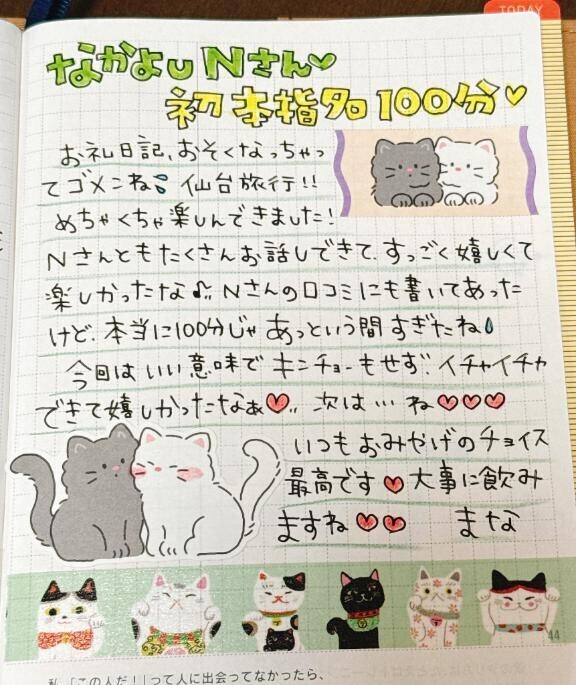 TODAY
なかよしNさん♡
初本指名100分♡
お礼日記、おそくなっちゃっ
てゴメンね 仙台旅行!!
めちゃくちゃ楽しんできました!
Nさんともたくさんお話しできて、すっごく嬉しくて
楽しかったな♪ Nさんの口コミにも書いてあった
けど、本当に100分じゃ あっという間すぎたね
今回は いい意味で キンチョーもせず、イチャイチャ
できて嬉しかったなぁ♡‥ 次は…ね♡♡♡
いつもおみやげのチョイス
最高です♡ 大事に飲み
ますね♡♡ まな
44
私、「この人だ!」って人に出会ってなかったら、